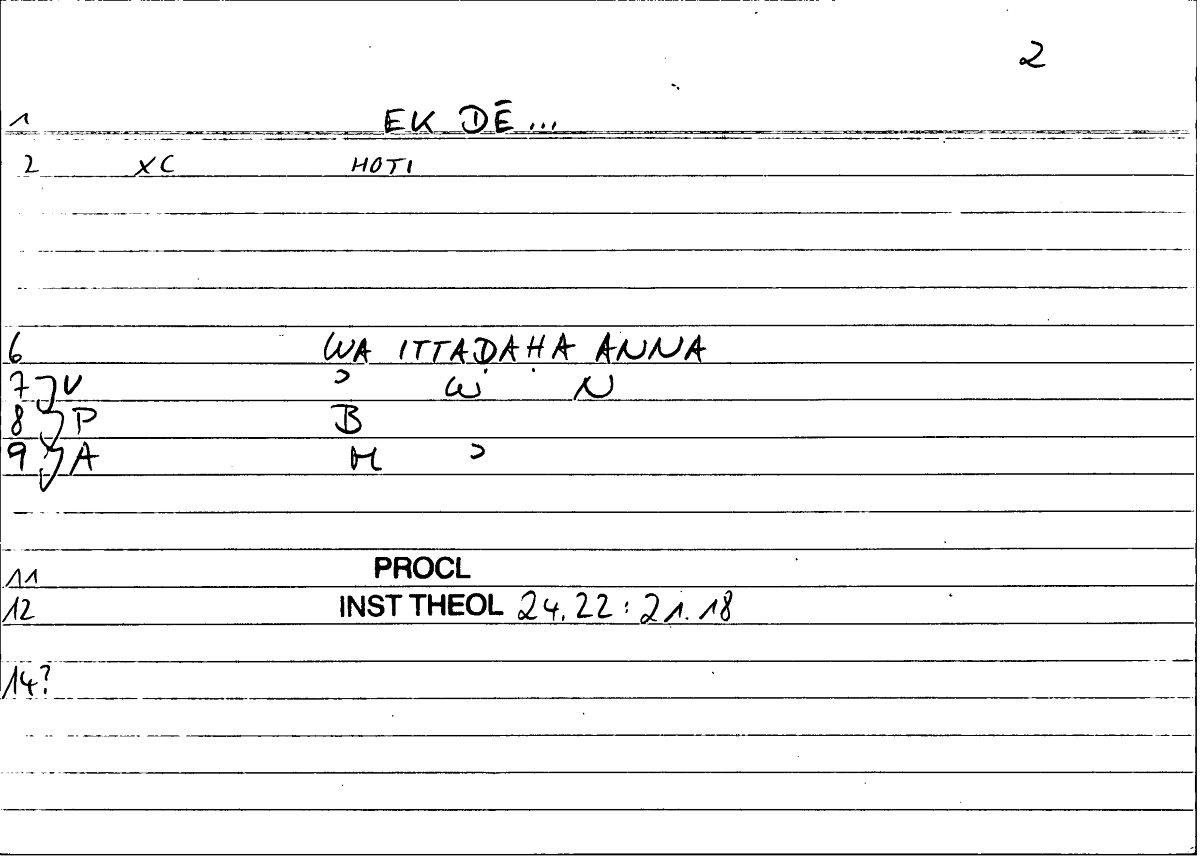 2
1 EK DĒ...
2 XC HOTI
6 WA ITTAḌAḤA ANNA
7 V ɔ W N
8 P B
9 A M ɔ
11 PROCL
12 INST THEOL 24.22 : 21.18
14?